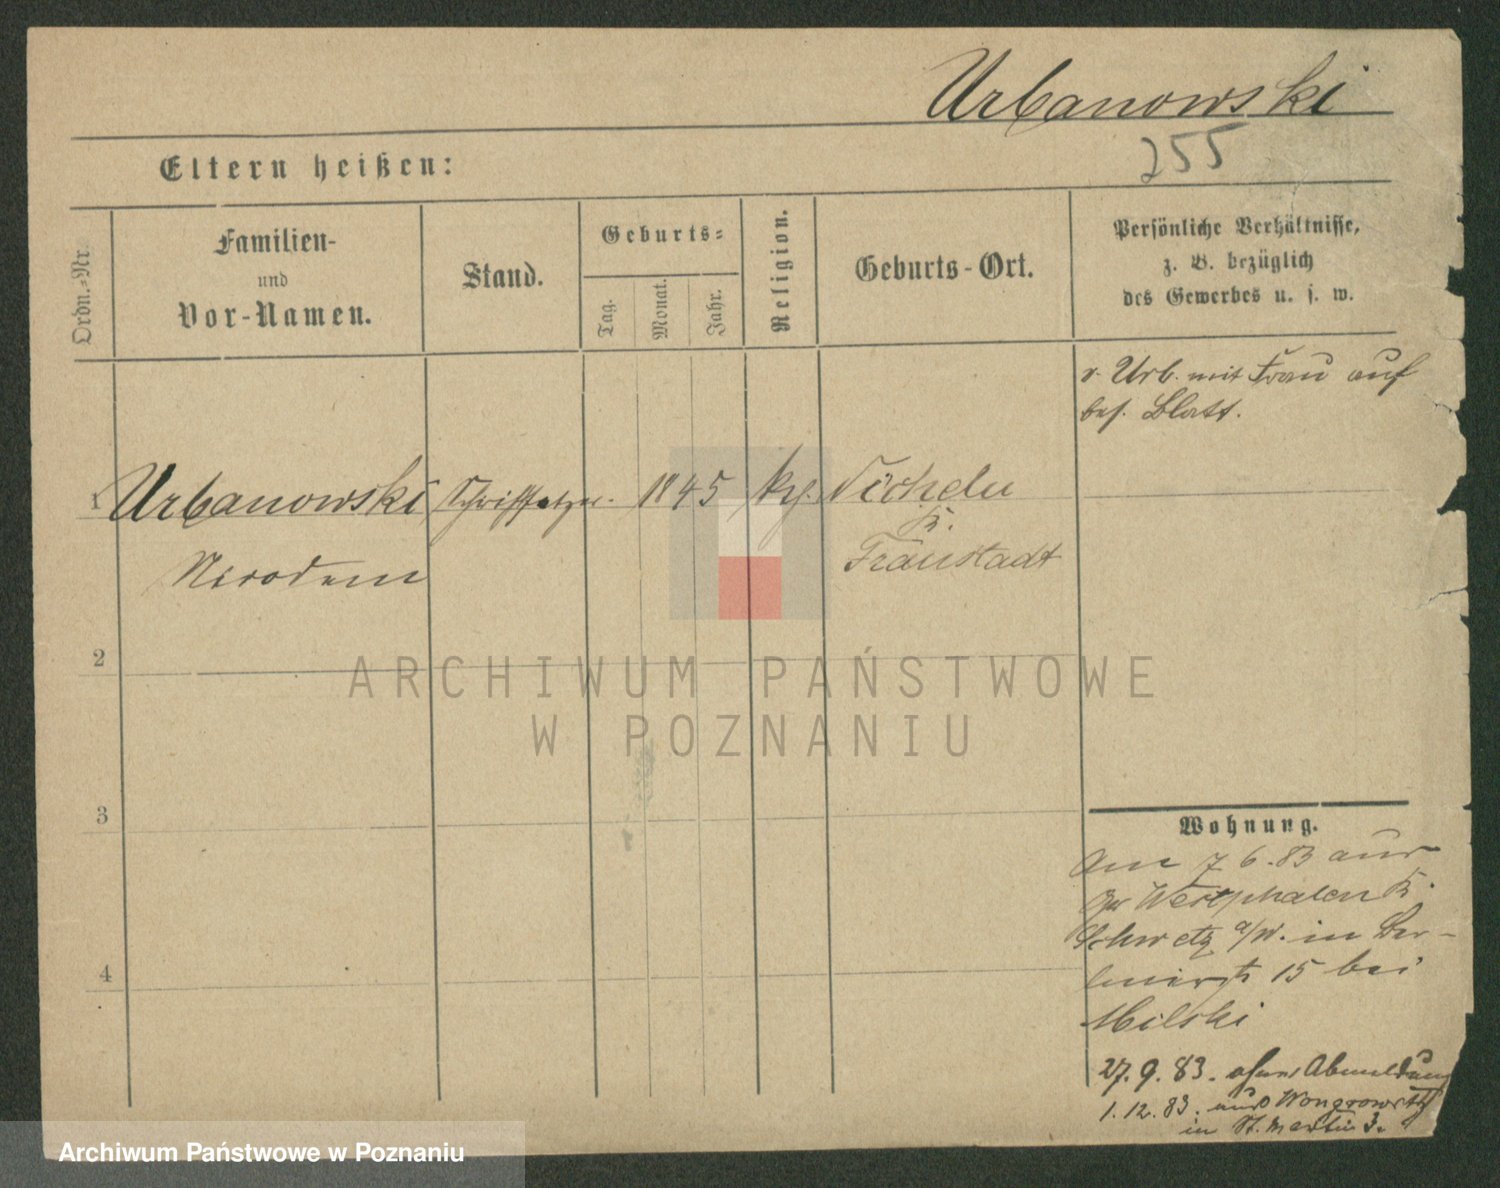 Urbanowski
255
Eltern heißen:
Ordn.-Nr.
Familien-
und
Vor-Namen.
Stand.
Geburts-
Tag.
Monat.
Jahr.
Religion.
Geburts-Ort.
Persönliche Verhältnisse,
z. B. bezüglich
des Gewerbes u. s. w.
v. Urb. mit Frau auf
bes. Blatt.
1 Urbanowski Schriftsetzer. 1845
K.
Fraustadt
2
ARCHIWUM PAŃSTWOWE
W POZNANIU
3
Wohnung.
7 6. 83 aus
Westphalen K.
Schwetz a/W. in Ber-
linerstr 15 bei
Milski
4
27. 9. 83. ohne Abmeldung
1. 12. 83. aus Wongrowitz
in St. Martin 3.
Archiwum Państwowe w Poznaniu